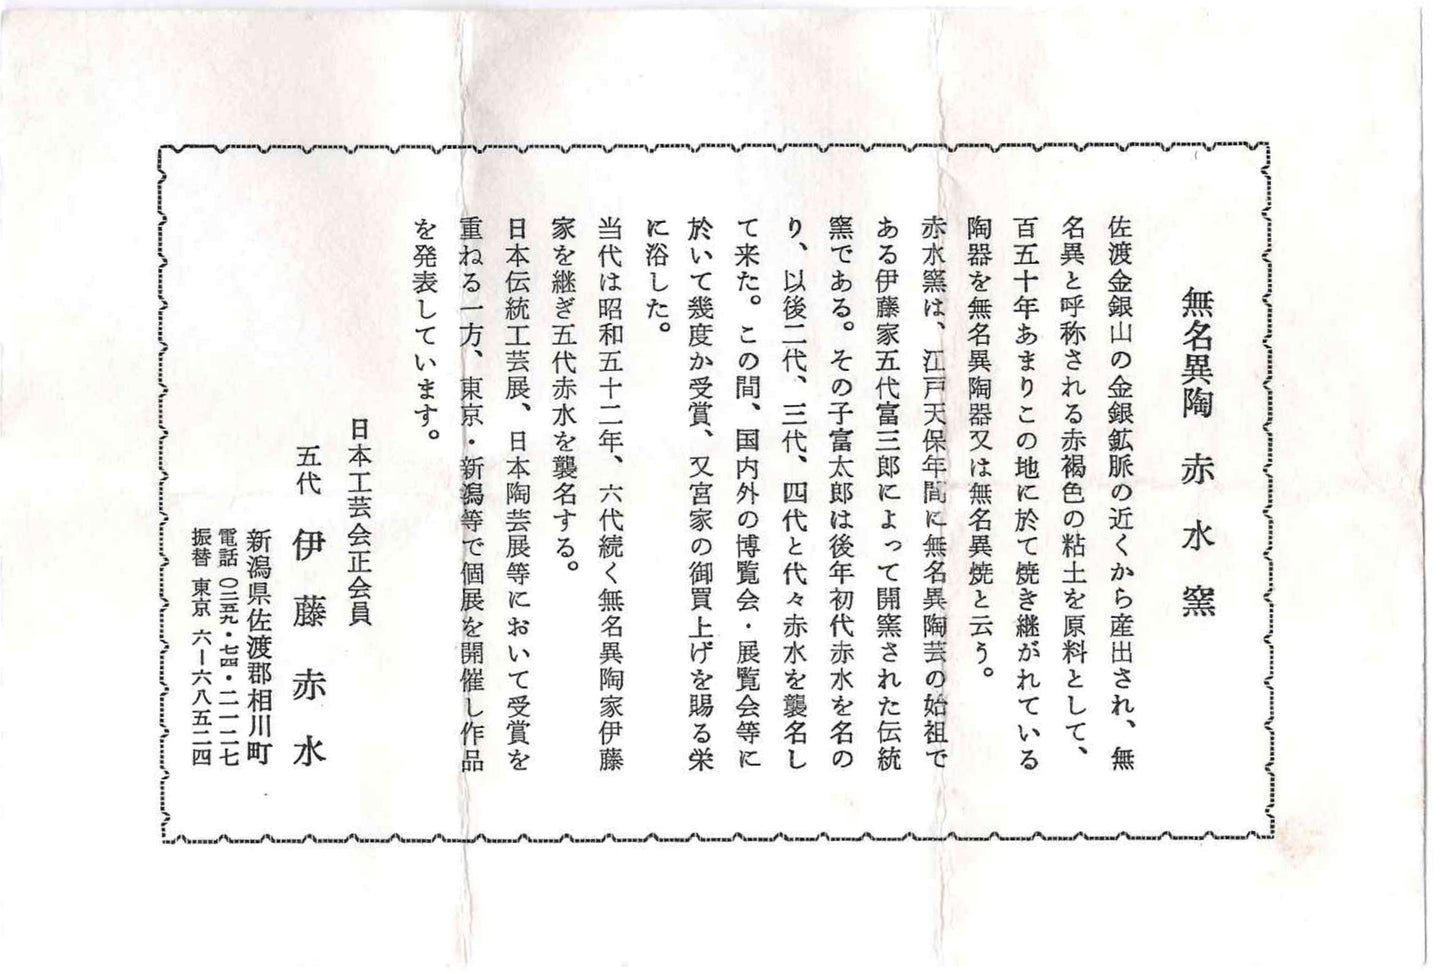 無名異陶　赤水窯
佐渡金銀山の金銀鉱脈の近くから産出され、無
名異と呼称される赤褐色の粘土を原料として、
百五十年あまりこの地に於て焼き継がれている
陶器を無名異陶器又は無名異焼と云う。
赤水窯は、江戸天保年間に無名異陶芸の始祖で
ある伊藤家五代富三郎によって開窯された伝統
窯である。その子富太郎は後年初代赤水を名の
り、以後二代、三代、四代と代々赤水を襲名し
て来た。この間、国内外の博覧会・展覧会等に
於いて幾度か受賞、又宮家の御買上げを賜る栄
に浴した。
当代は昭和五十二年、六代続く無名異陶家伊藤
家を継ぎ五代赤水を襲名する。
日本伝統工芸展、日本陶芸展等において受賞を
重ねる一方、東京・新潟等で個展を開催し作品
を発表しています。
日本工芸会正会員
五代　伊藤赤水
新潟県佐渡郡相川町
電話 〇二五九・七四・二一二七
振替 東京 六―六八五二四